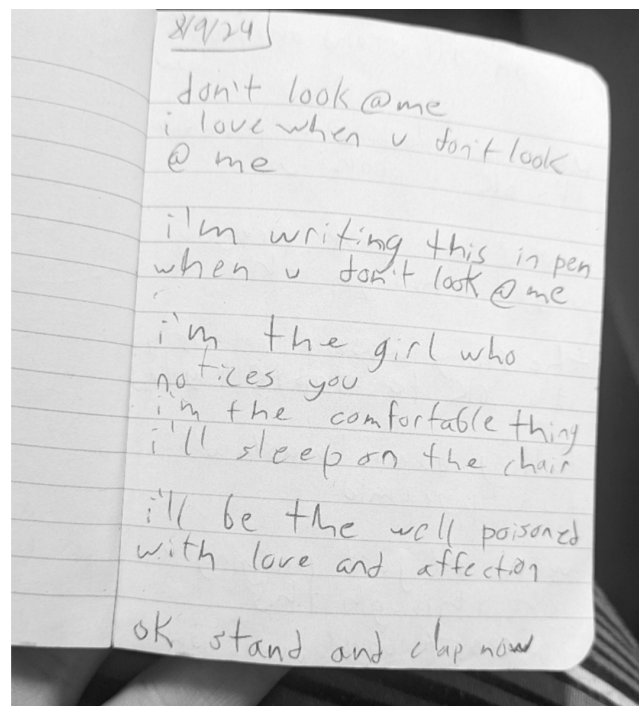 8/9/24
don't look @me
i love when u don't look
@ me
i'm writing this in pen
when u don't look @ me
i'm the girl who
notices you
i'm the comfortable thing
i'll sleep on the chair
i'll be the well poisoned
with love and affection
ok stand and clap now